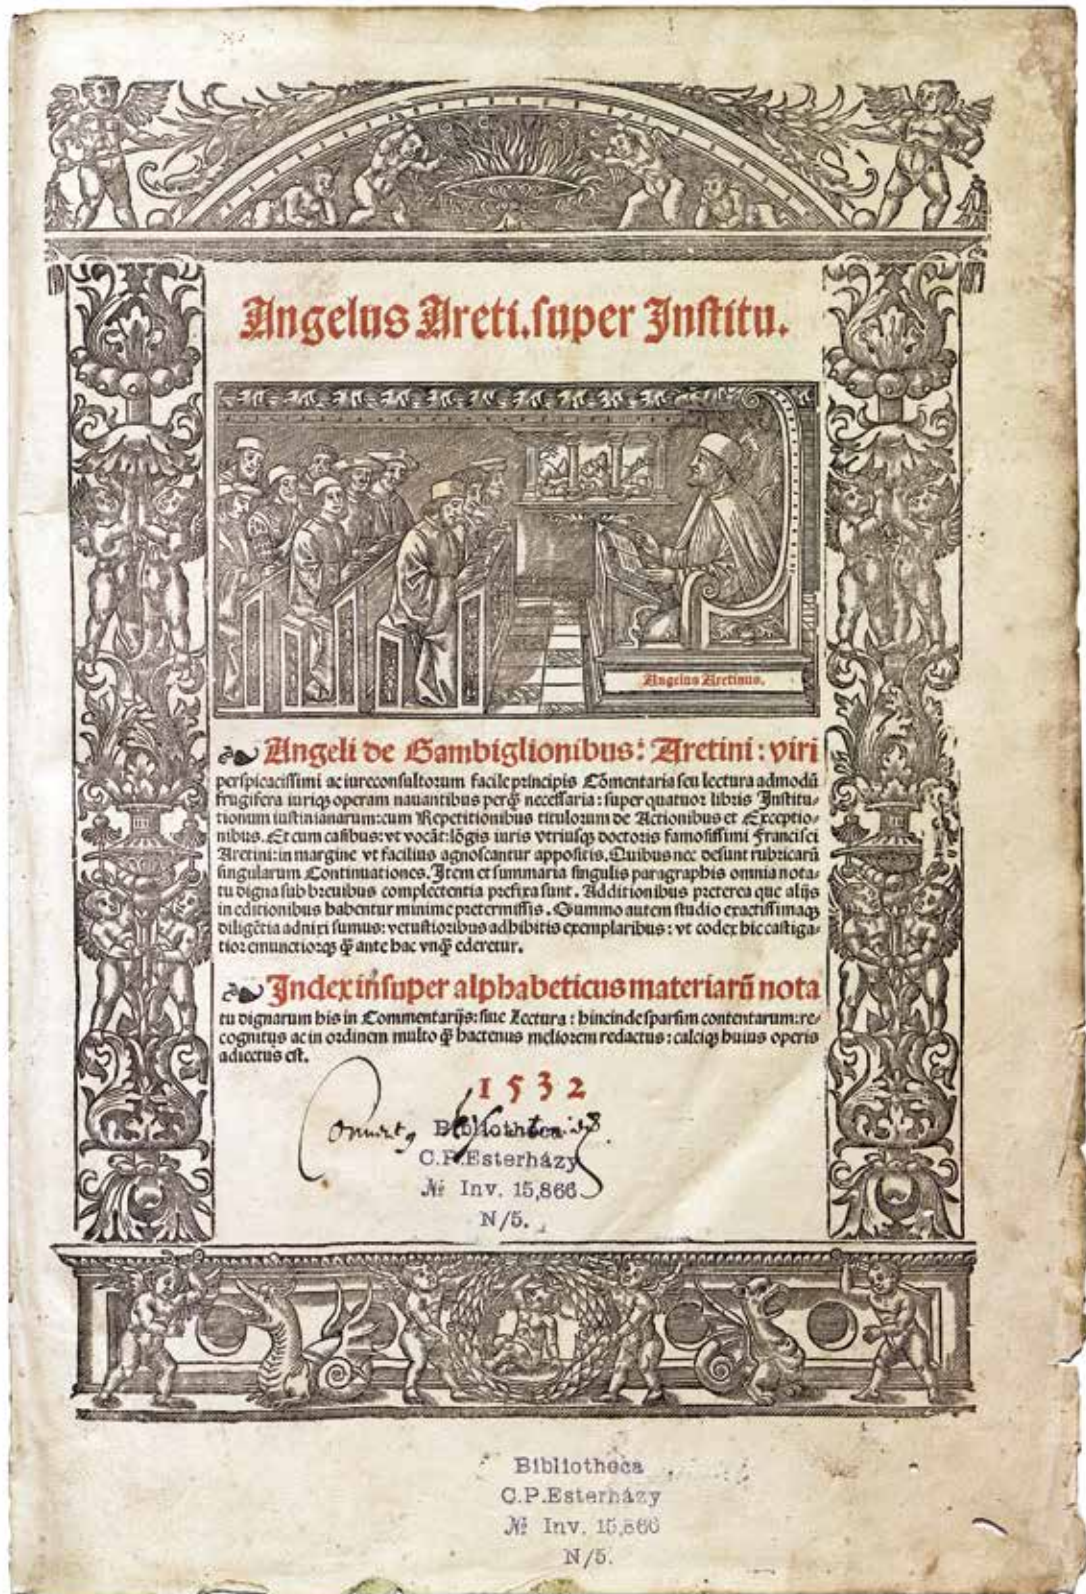 Angelus Areti.super Institu.
Angelus Aretinus.
Angeli de Gambiglionibus: Aretini: viri
perspicacissimi ac iureconsultorum facile principis Cōmentaria seu lectura admodū
frugifera iuriqꝫ operam nauantibus perq̄ necessaria: super quatuor libris Institu-
tionum iustinianarum: cum Repetitionibus titulorum de Actionibus et Exceptio-
nibus. Et cum casibus: vt vocāt: lōgis iuris vtriusqꝫ doctoris famosissimi Francisci
Aretini: in margine vt facilius agnoscantur appositis. Quibus nec desunt rubricarū
singularum Continuationes. Item et summaria singulis paragraphis omnia nota-
tu digna sub breuibus complectentia prefixa sunt. Additionibus preterea que alijs
in editionibus habentur minime pretermissis. Summo autem studio exactissimaqꝫ
diligētia adnixi sumus: vetustioribus adhibitis exemplaribus: vt codex hic castiga-
tior emunctiorqꝫ q̄ ante hac vnq̄ ederetur.
Index insuper alphabeticus materiarū nota
tu dignarum his in Commentarijs: siue Lectura: hincinde sparsim contentarum: re-
cognitus ac in ordinem multo q̄ hactenus meliorem redactus: calciqꝫ huius operis
adiectus est.
1532
Bibliotheca
C.P.Esterházy
№ Inv. 15,866
N/5.
Bibliotheca
C.P.Esterházy
№ Inv. 15,866
N/5.